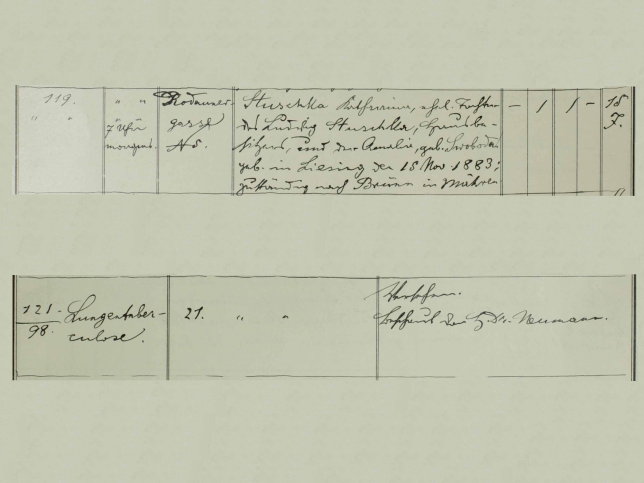 119. " " Rodauner- Stuschka Katharina, ehel. Tochter — 1 1 — 15
" " 7 Uhr gasse des Ludwig Stuschka, Hausbe- J.
morgens. No sitzers, und der Amalie, geb. Swoboda
geb. in Liesing den 18 Nov. 1883;
zuständig nach Brünn in Mähren
121 Lungentuber- 21. " " Versehen.
98. culose. Beschaut von H. Dr. Neumann.